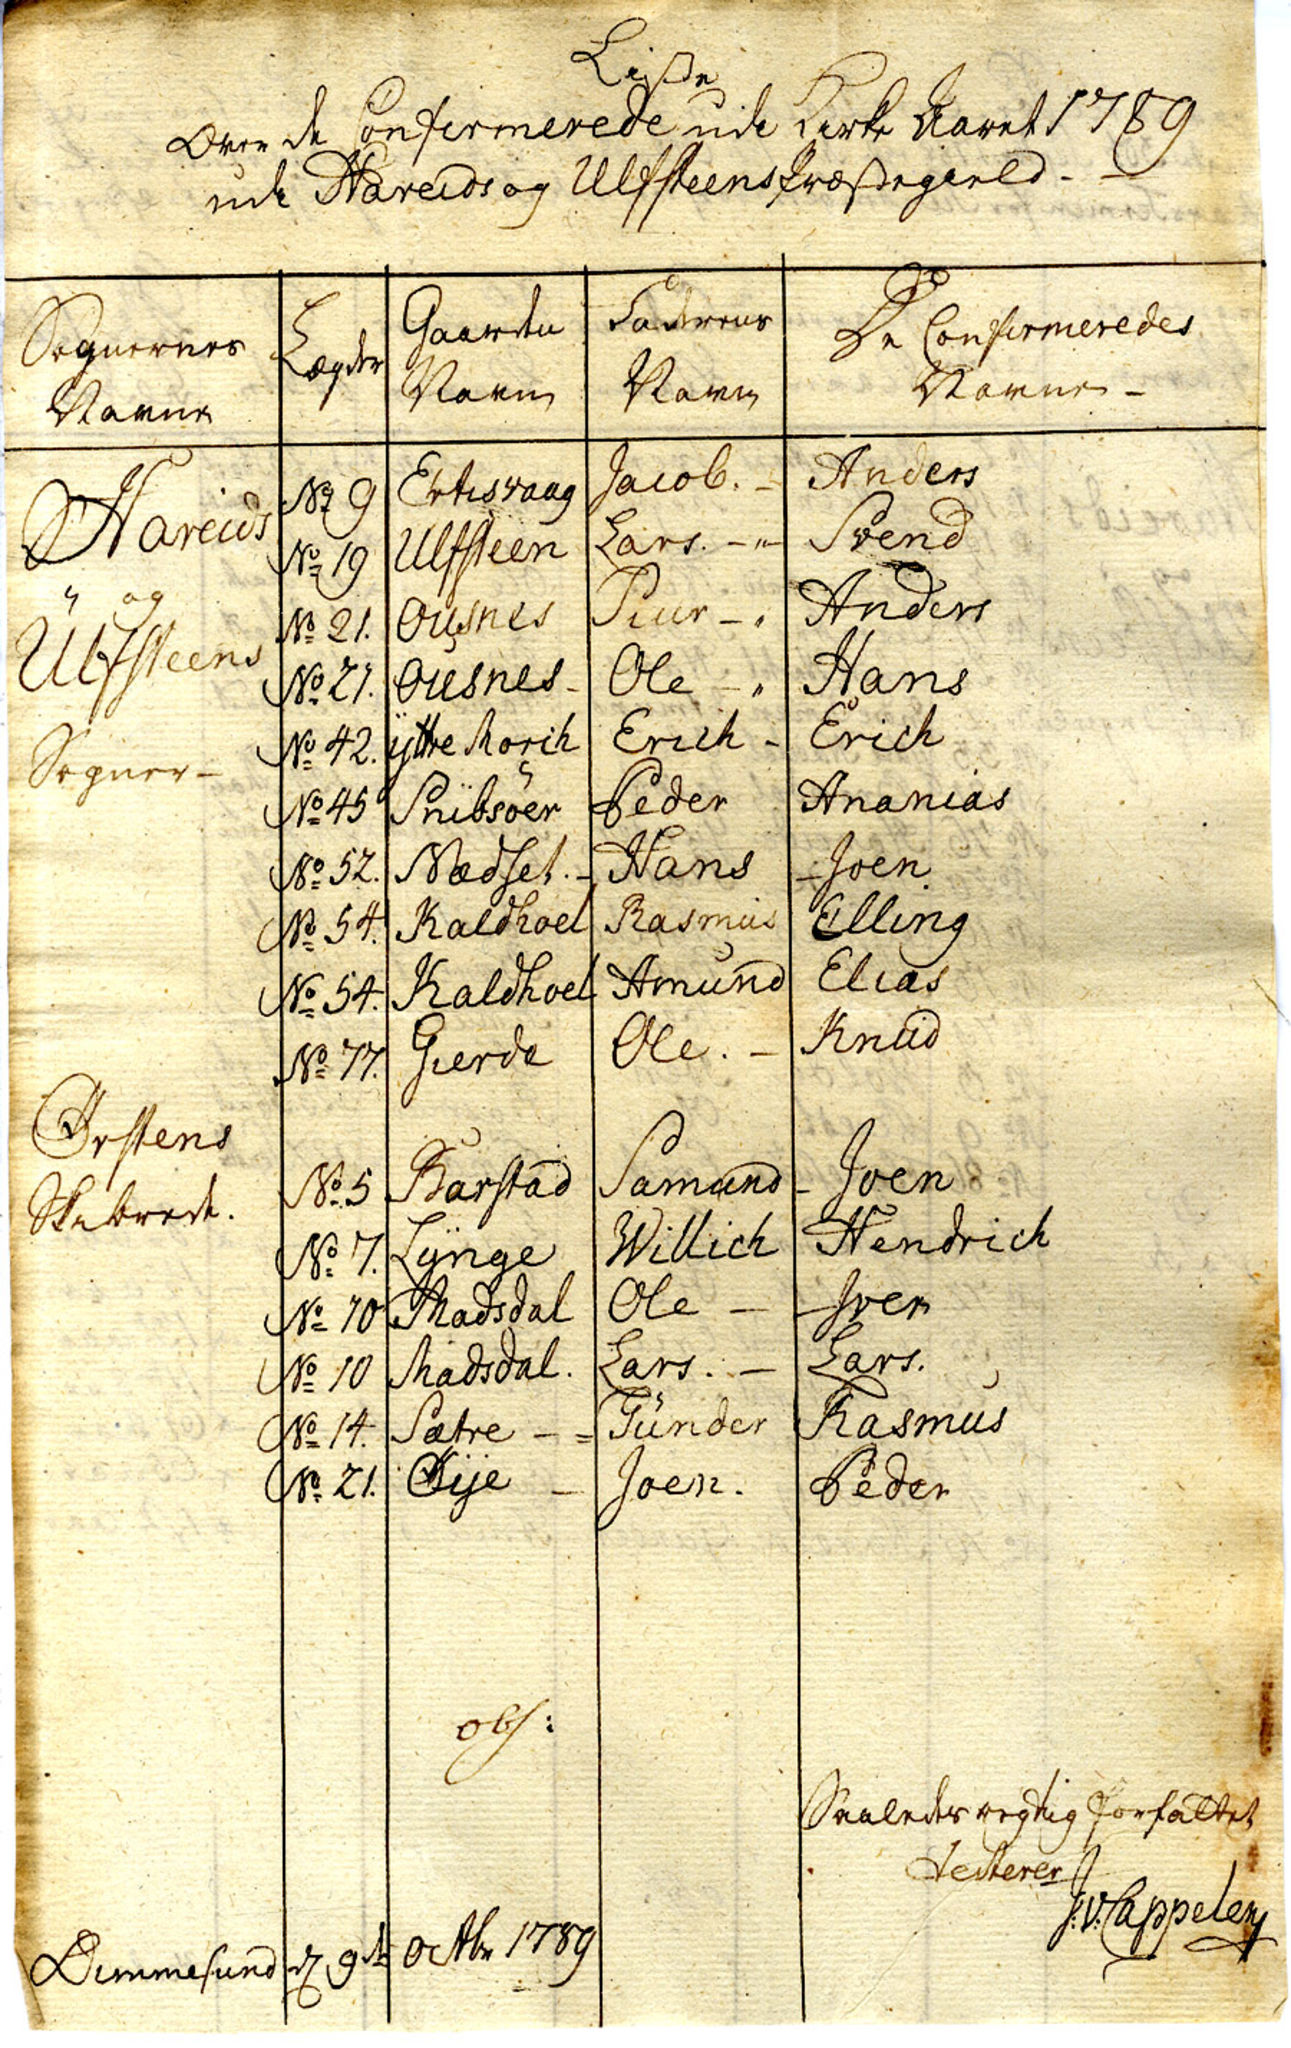 Liste
Over de Confirmerede udi Kirke Aaret 1789
udi Hareids og Ulfsteens Præstegield -
Sognernes Navne | Lægder | Gaardens Navn | Faderens Navn | De Confirmeredes Navne -
Hareids | No 9 | Ertisvaag | Jacob. - | Anders
No 19 | Ulfsteen | Lars. - | Svend
og | No 21. | Ousnes | Siur - | Anders
Ülfsteens | No 21. | Ousnes - | Ole - | Hans
Sogner - | No 42. | ÿttre Morch | Erich - | Erich
No 45 | Snibsöer | Peder | Ananias
No 52. | Nædset. - | Hans | - Joen
No 54. | Kaldhoel | Rasmus | Elling
No 54. | Kaldhoel | Amund | Elias
No 77. | Gierde | Ole. - | Knud
Ørstens
Skibrede. | No 5 | Barstad | Samund | - Joen
No 7. | Lÿnge | Willich | Hendrich
No 10 | Madsdal | Ole - | - Iver
No 10 | Madsdal. | Lars. - | Lars.
No 14. | Sætre - | Tünder | Rasmus
No 21. | Øije - | Joen. | Peder
obs:
Saaledes rigtig forfattet
testerer
J: v: Cappelen
Dimmesund d 9de Octbr 1789